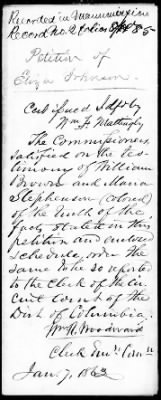 Recorded in Manumission
Record No. 2 folios 85
Petition of
Eliza Johnson.
Certificd & dft by
Wm. F. Mattingly
The Commissioners
satisfied on the tes-
timony of William
Brown and Maria
Stephenson (colored)
of the truth of the
facts stated in this
petition and annexed
schedule, order the
same to be so reported
to the Clerk of the Cir
cuit Court of the
Dist of Columbia.
Wm. R. Woodward
Clerk
Jan 7. 1863